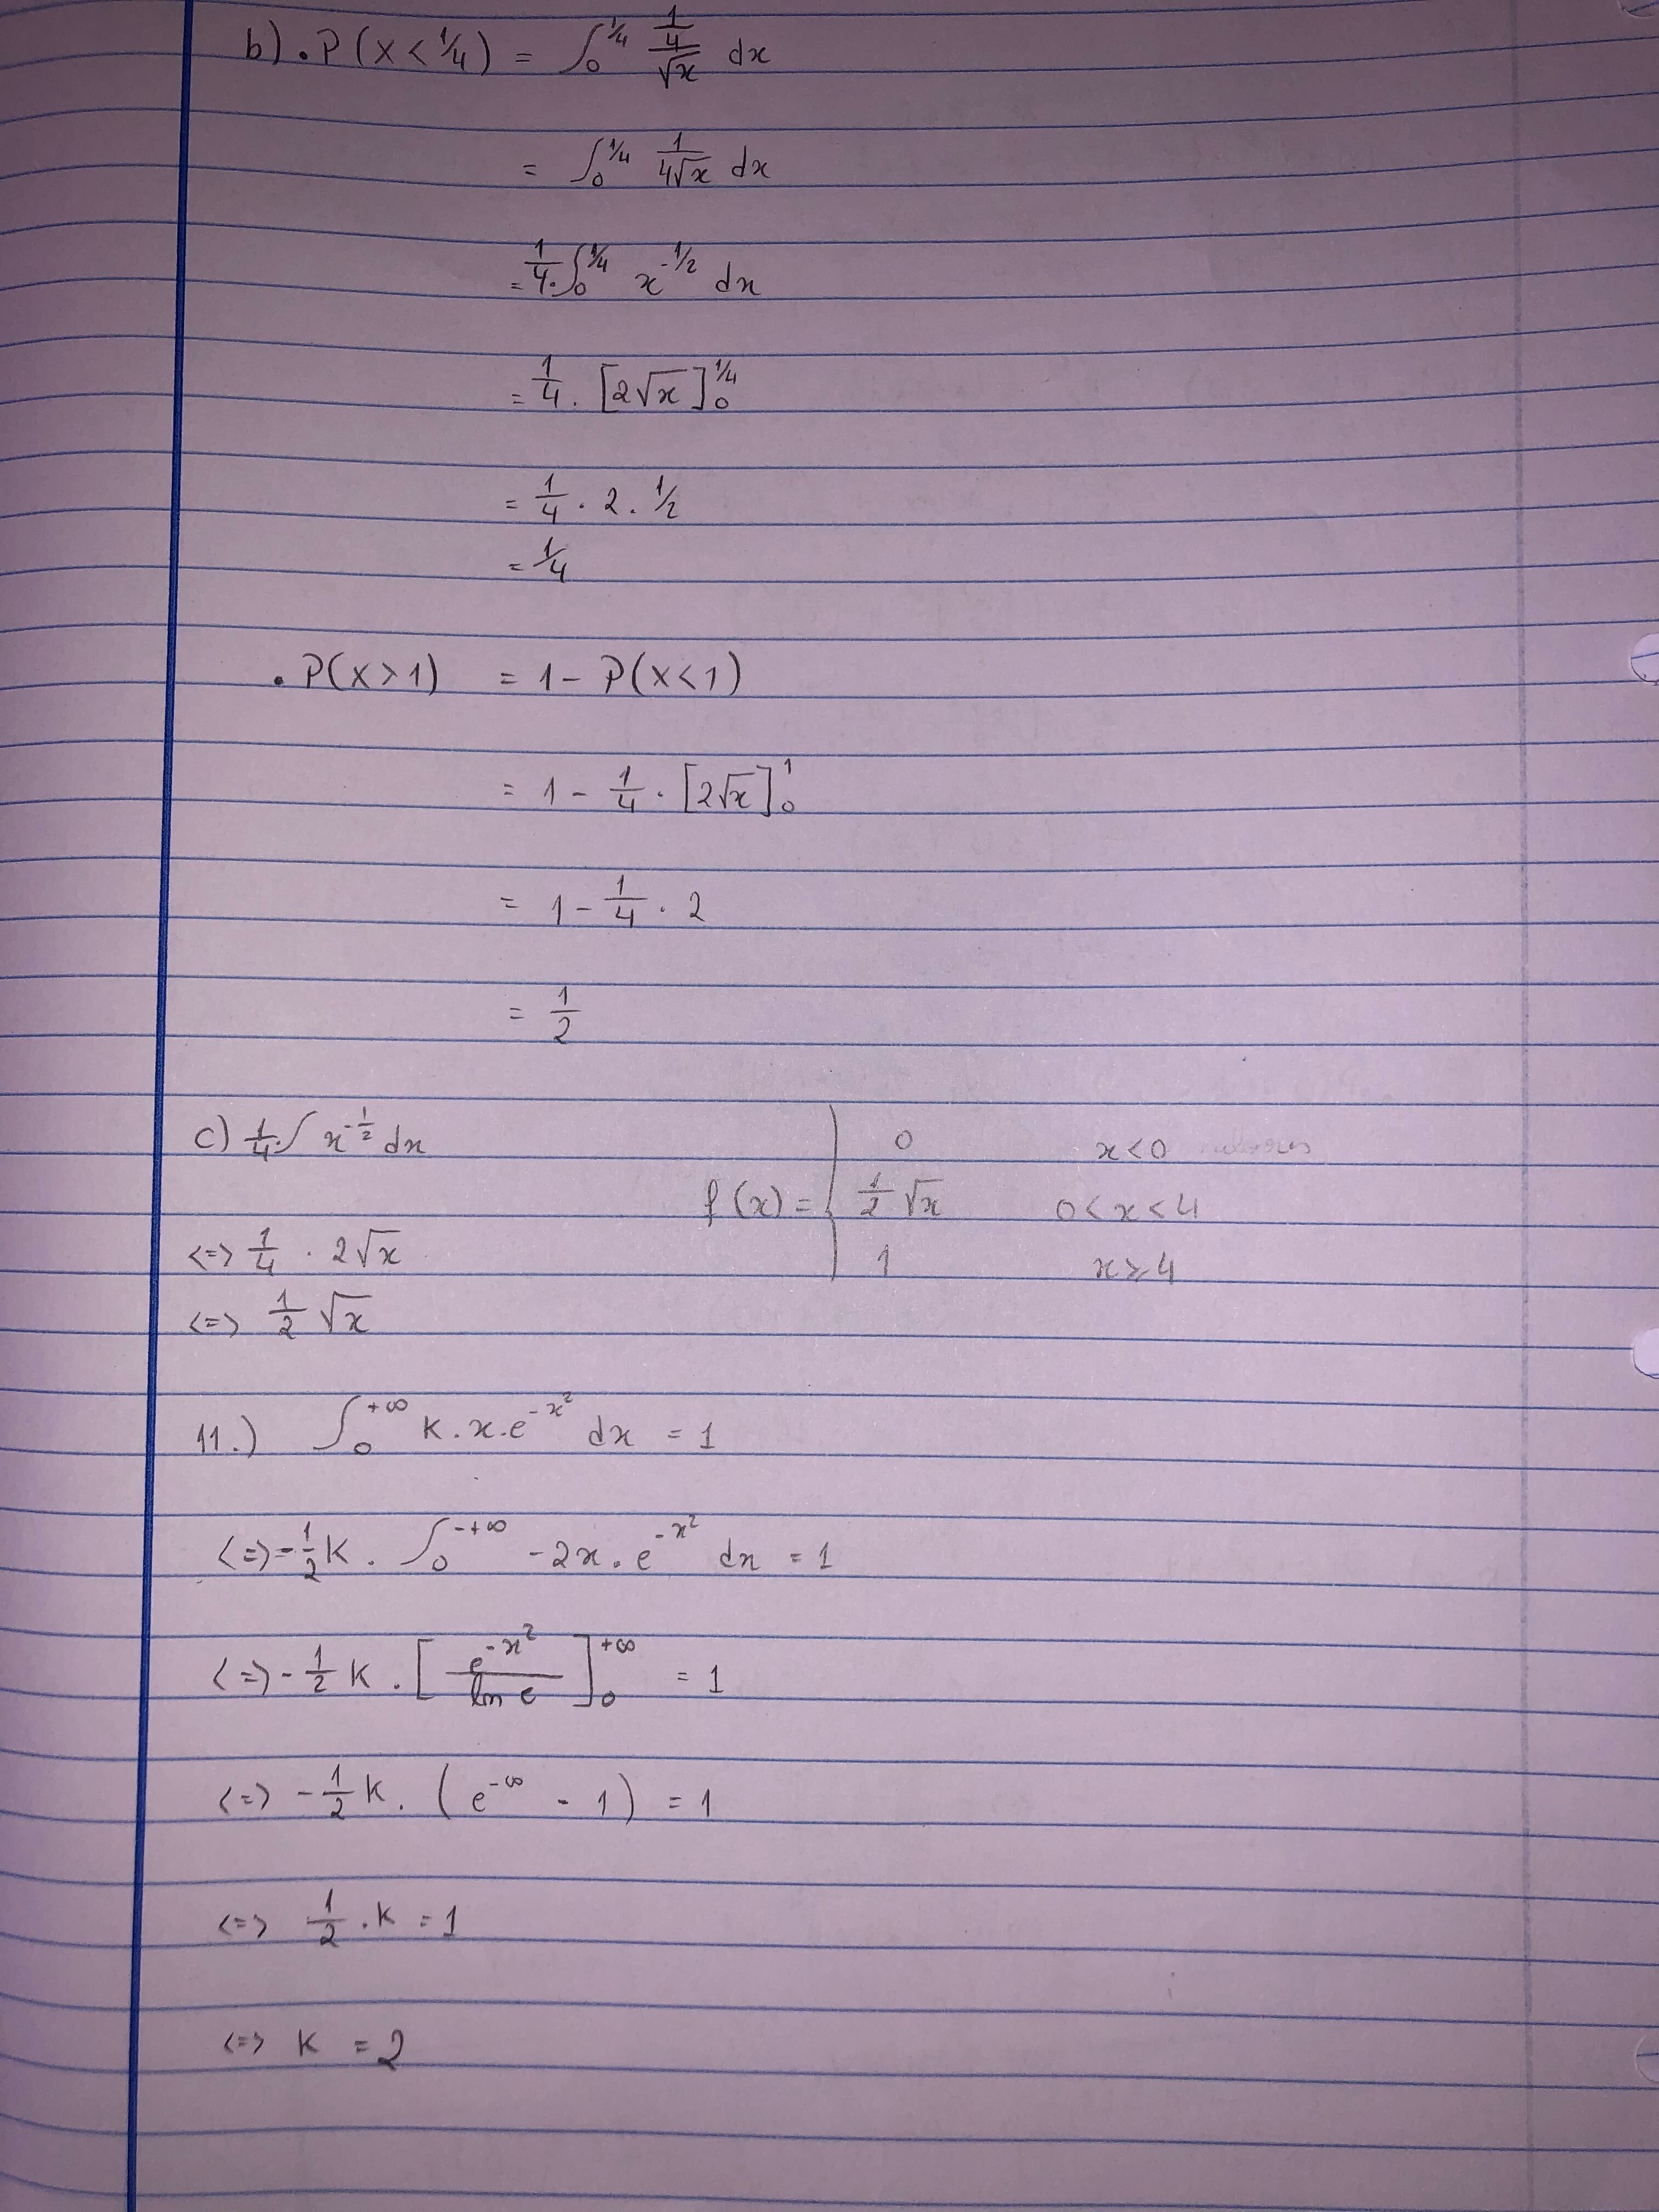 b) • P(X < 1/4) = ∫₀^{1/4} (1/4)/√x dx
= ∫₀^{1/4} 1/(4√x) dx
= 1/4 · ∫₀^{1/4} x^{-1/2} dx
= 1/4 · [2√x]₀^{1/4}
= 1/4 · 2 · 1/2
= 1/4
• P(X > 1) = 1 - P(X < 1)
= 1 - 1/4 · [2√x]₀^{1}
= 1 - 1/4 · 2
= 1/2
c) 1/4 · ∫ x^{-1/2} dx
<=> 1/4 · 2√x
<=> 1/2 √x
f(x) = { 0 x < 0
1/2 √x 0 < x < 4
1 x ⩾ 4
11.) ∫₀^{+∞} k · x · e^{-x²} dx = 1
<=> -1/2 k · ∫₀^{+∞} -2x · e^{-x²} dx = 1
<=> -1/2 k · [e^{-x²}/ln e]₀^{+∞} = 1
<=> -1/2 k · (e^{-∞} - 1) = 1
<=> 1/2 · k = 1
<=> k = 2